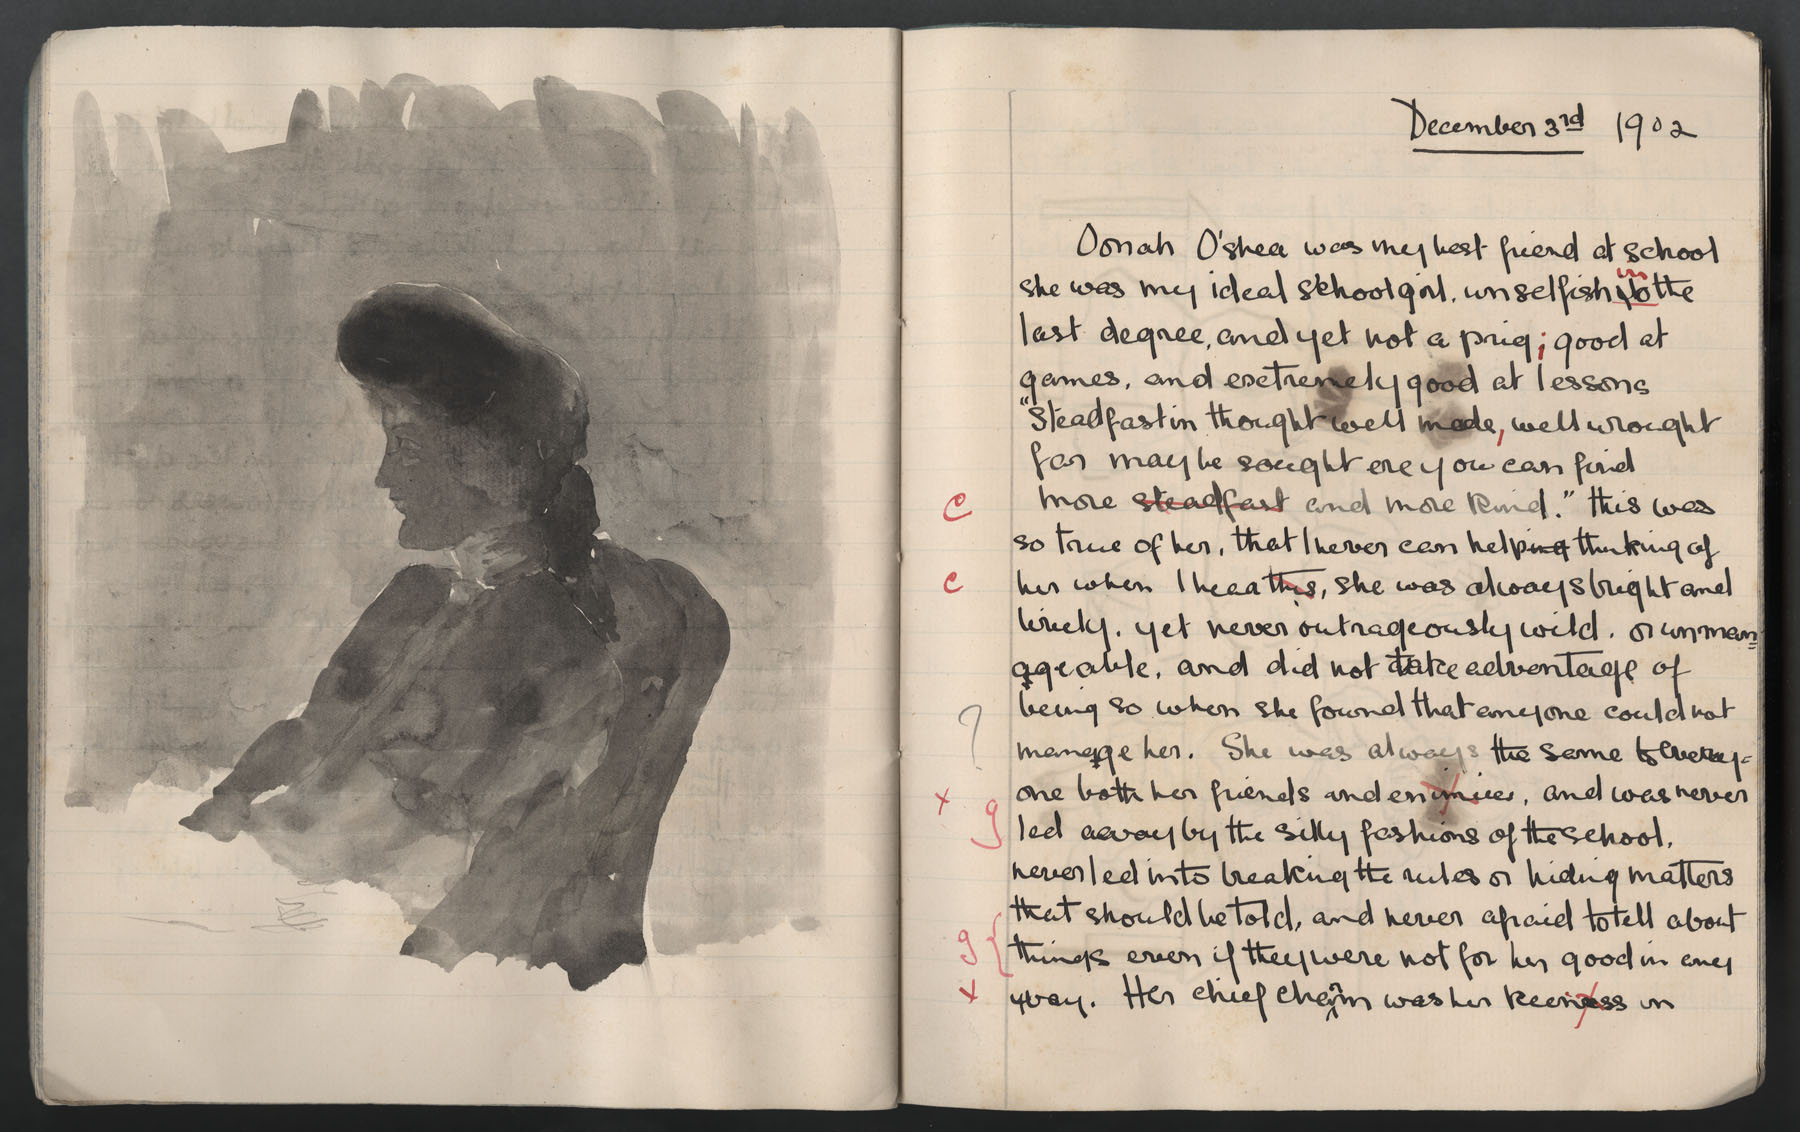 December 3rd 1902
Oonah O'shea was my best friend at school
she was my ideal schoolgirl. unselfish to in the
last degree, and yet not a prig; good at
games, and exctremely good at lessons
"Steadfast in thought well made, well wrought
far may be sought ere you can find
c more steadfast and more kind." this was
so true of her, that I never can helping thinking of
c her when I hear this, she was always bright and
lively, yet never outrageously wild. or unman=
ageable, and did not take advantage of
being so when she found that anyone could not
? manage her. She was always the same to every=
x one both her friends and enimies, and was never
g led away by the silly fashions of the school,
never led into breaking the rules or hiding matters
that should be told, and never afraid to tell about
g { things even if they were not for her good in any
x way. Her chief charm was her keeness in